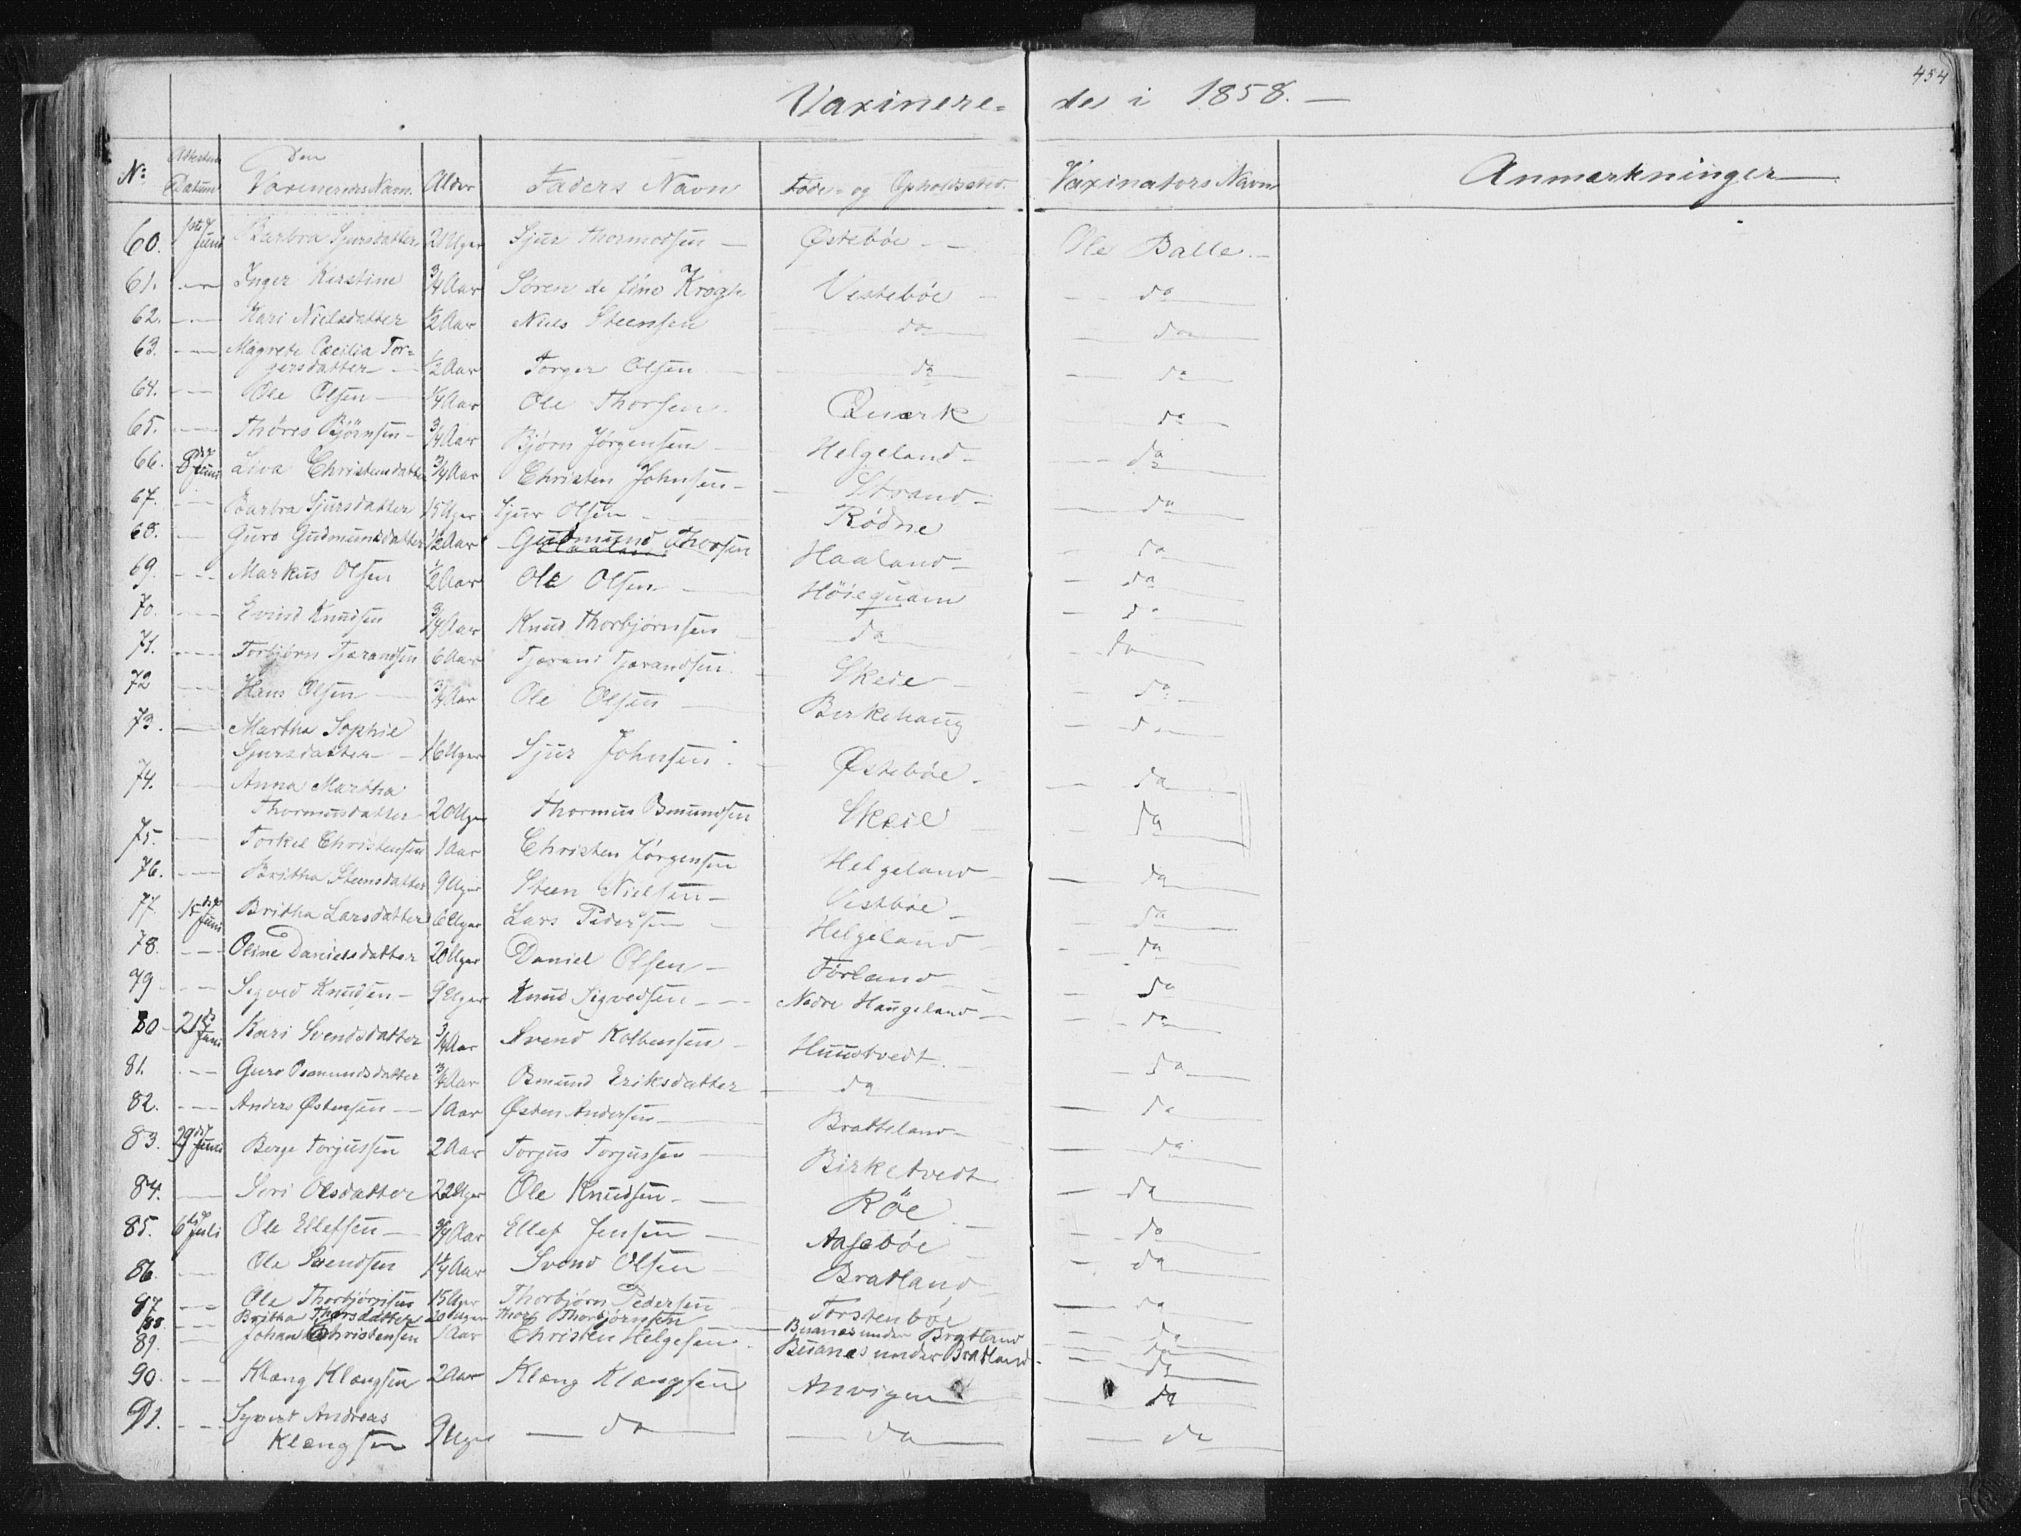 454
Vaxinere- des i 1858. —
No: Attestens Datum Den Vaxineredes Navn. Alder Faders Navn Føde- og Opholdssted. Vaxinators Navn Anmærkninger
60. 1ste Juni Barbra Sjursdatter 20 Uger Sjur Thormodsen — Østebøe — Ole Balle. —
61. — Inger Kirstine 3/4 Aar Søren de fine Krogh Vestebøe — do
62. — Kari Nielsdatter 1/2 Aar Niels Steensen do — do
63. — Magrete Cecilia Tor-
gersdatter — 1/2 Aar Torger Olsen do — do
64. — Ole Olsen — 1/4 Aar Ole Thorsen Quærk — do
65. — Thøres Bjørnsen — 3/4 Aar Bjørn Jørgensen — Helgeland — do
66. 8de Juni Liva Christensdatter 3/4 Aar Christen Johnsen — Strand — do
67. — Barbra Sjursdatter 15 Uger Sjur Olsen — Rødne — do
68. — Guro Gudmundsdatter 1/2 Aar Gudmund Thorsen Haaland — do
69. — Markus Olsen 1/2 Aar Ole Olsen — Høiequam — do
70. — Eivind Knudsen 3/4 Aar Knud Thorbjørnsen do — do
71. — Torbjørn Tjærandsen 6 Aar Tjærand Tjærandsen. Skeie — do
72 — Hans Olsen — 3/4 Aar Ole Olsen — Birkehaug — do
73. — Martha Sophie
Sjursdatter — 16 Uger Sjur Johnsen. Østebøe — do
74. — Anna Martha
Thormusdatter 20 Uger Thormus Osmundsen Skeie — do
75. — Torkel Christensen 1 Aar Christen Jørgensen Helgeland — do
76. — Britha Steensdatter 9 Uger Steen Nielsen — Vestbøe — do
77. 15de Juni Britha Larsdatter 6 Uger Lars Pedersen — Helgeland — do
78. — Oline Danielsdatter 20 Uger Daniel Olsen — Førland — do
79 — Sigved Knudsen — 9 Uger Knud Sigvedsen — Nedre Haugeland — do
80 — 21de Juni Kari Svendsdatter 3/4 Aar Svend Kolbensen — Huustvedt — do
81. — Guro Osmundsdatter 3/4 Aar Osmund Eriksdatter — do — do
82. — Anders Østensen — 1 Aar Østen Andersen — Bratteland — do
83. 29de Juni Berge Torjussen 2 Aar Torjus Torjussen — Birketvedt — do
84. — Siri Olsdatter 22 Uger Ole Knudsen — Røe — do
85. 6te Juli Ole Ellefsen — 3/4 Aar Ellef Jensen — Aasebøe — do
86. — Ole Svendsen 1/4 Aar Svend Olsen — Bratland — do
87. — Ole Thorbjørnsen 15 Uger Thorbjørn Pedersen — Torstenbøe — do
88. — Britha Thorsdatter 20 Uger Thore Thorbjørnsen — Buanes under Bratland — do
89. — Johan Christensen 1 Aar Christen Helgesen. Buanes under Bratland — do
90. — Klæng Klængsen 2 Aar Klæng Klængsen Anvigen — do
91. — Syvert Andreas
Klængsen 9 Uger — do — do — do